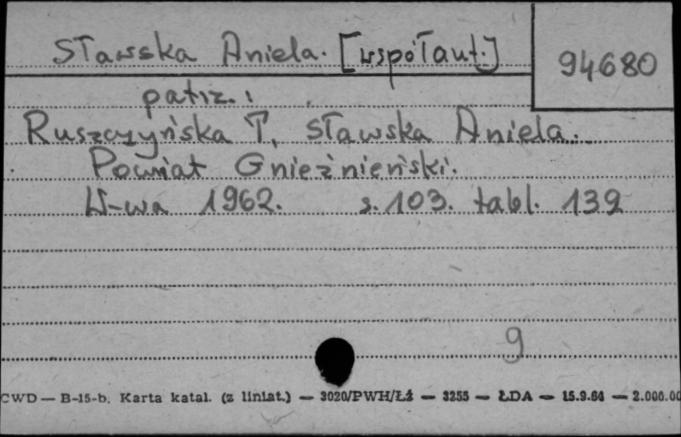 Sławska Aniela. [współaut.]
94680
patrz:
Ruszczyńska T, Sławska Aniela.
Powiat Gnieźnieński.
W-wa 1962. s. 103. tabl. 139
9
CWD — B-15-b. Karta katal. (z liniat.) — 3020/PWH/Łź — 3255 — ŁDA — 15.9.64 — 2.000.00